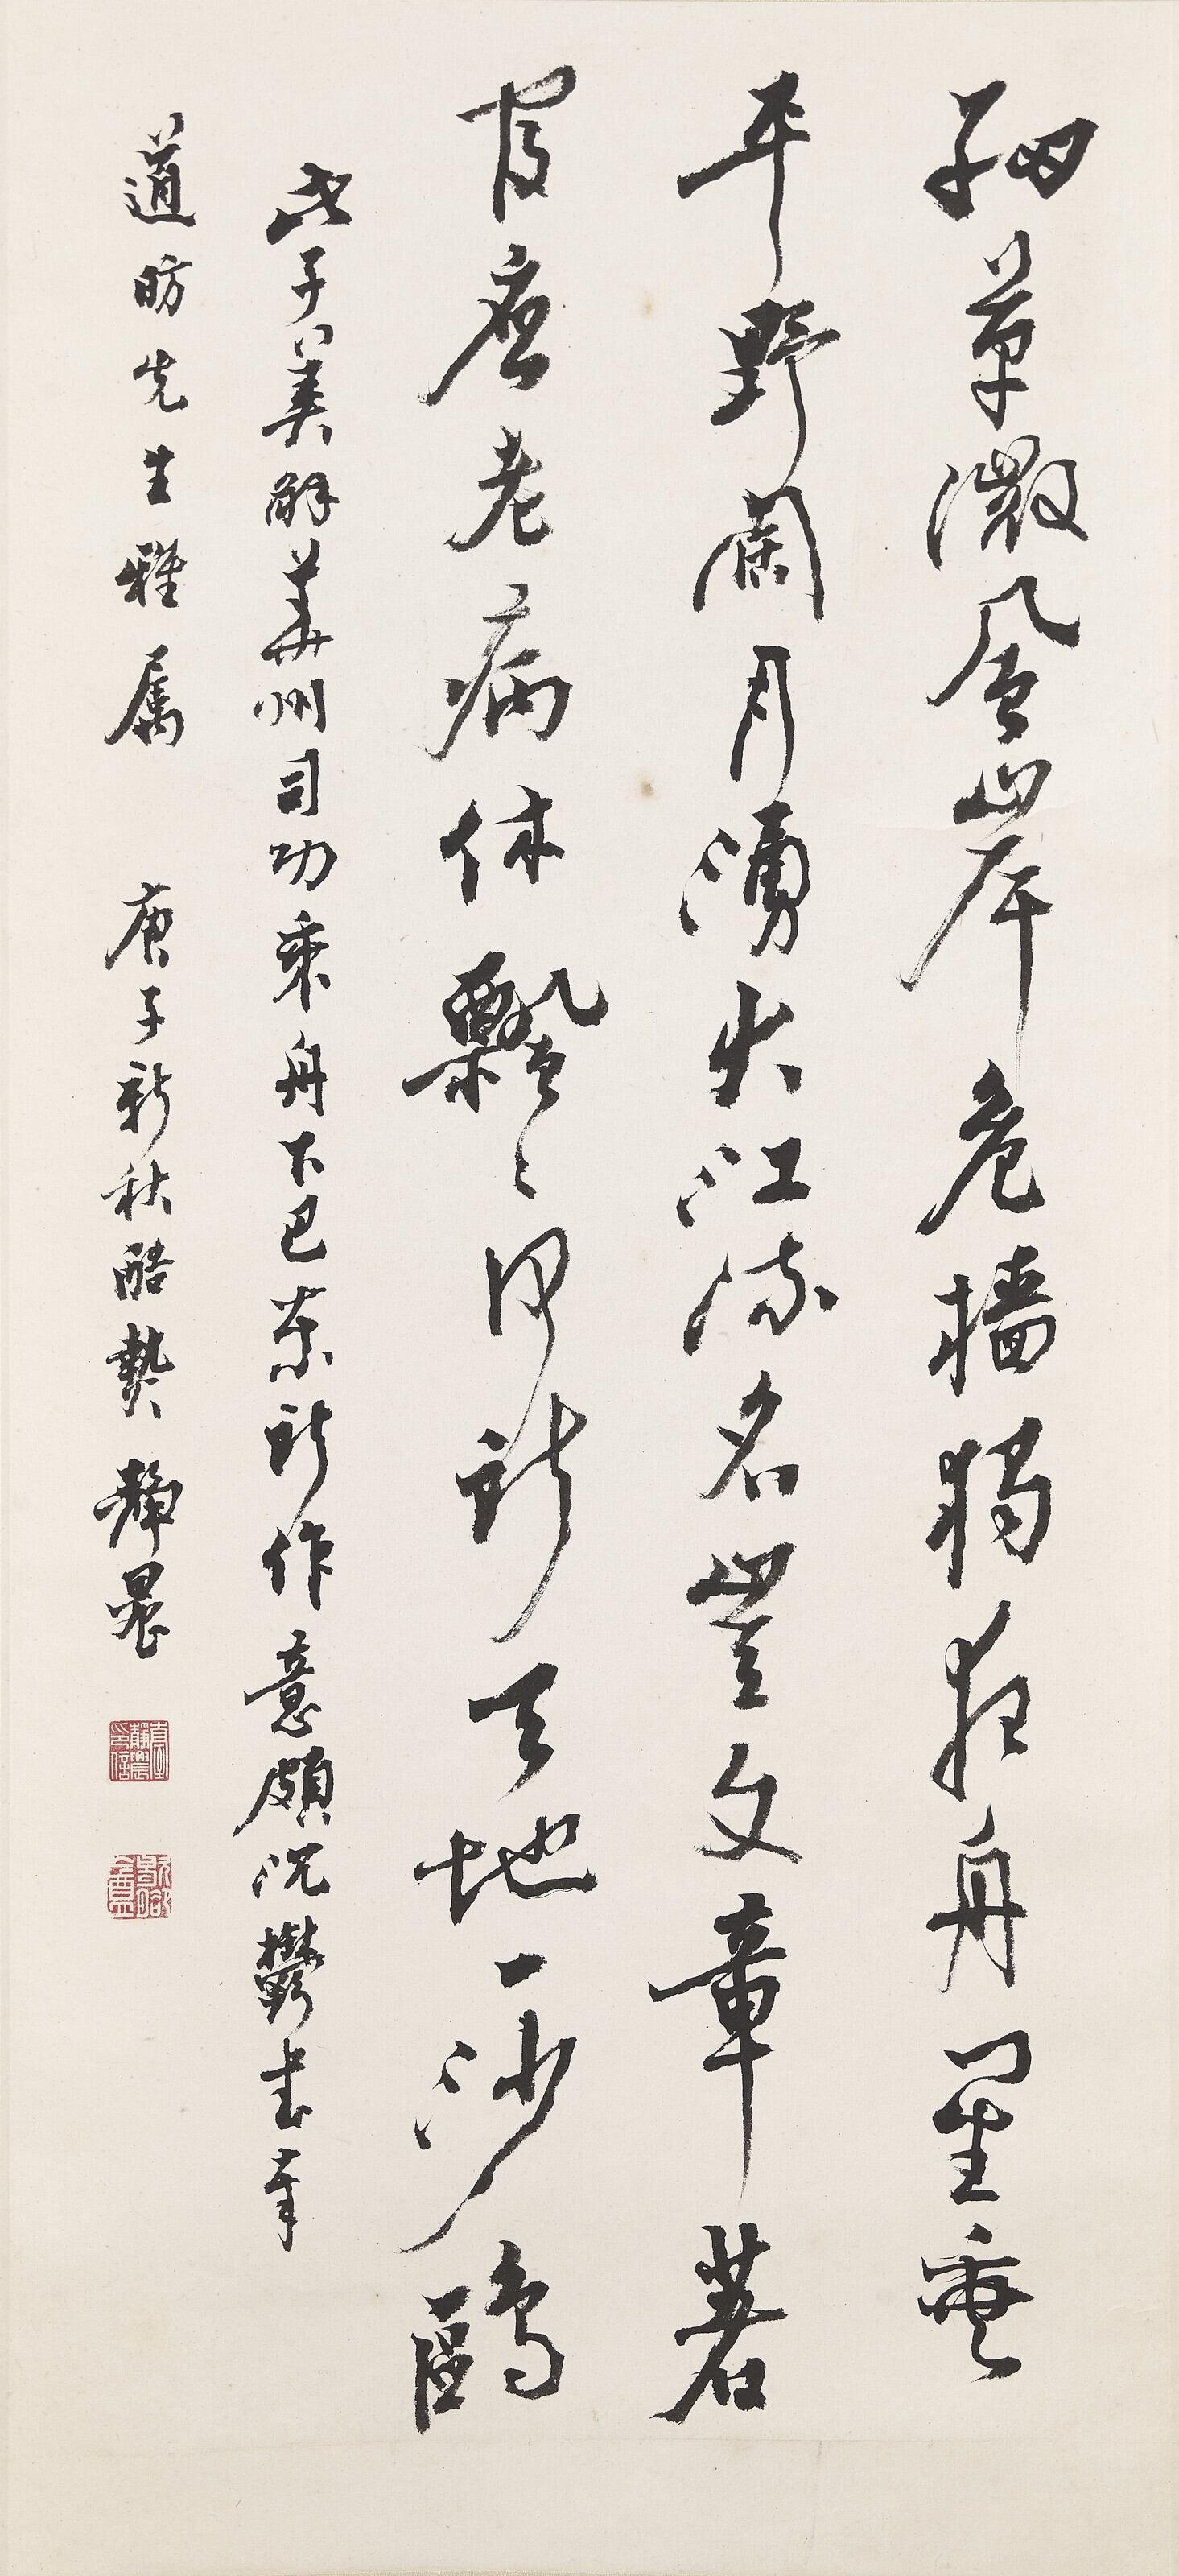 細草微風岸危檣獨夜舟星垂
平野闊月湧大江流名豈文章著
官應老病休飄〻何所天地一沙鷗
此子美解華州司功乘舟下巴東所作意頗沉鬱書奉
道昉先生雅属 庚子新秋酷熱 靜農
臺靜農印信
歇腳盦